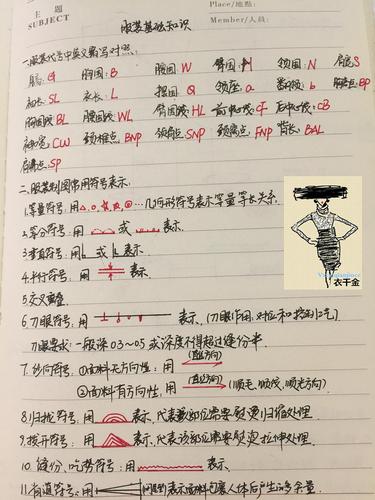 主题 Place/地點:
SUBJECT Member/人員:
服装基础知识
一.服装代号中英文书写对照.
胸围:B 腰围:W 臀围:H 领围:N 肩:S
袖长:SL 衣长:L BP
胸围线BL 腰围线WL 臀围线HL 前中心线CF 后中心线:CB
袖口宽:CW 颈椎点.BNP 颈肩点.SNP 颈窝点.FNP 背长:BAL
肩端点.SP
二.服装制图常用符号表示.
1.等量符号:用△.○.…几何形符号表示等量等长关系.
2.等分符号:用 或 表示.
3.垂直符号:用 或 表示.
4.平行符号:用 表示.
5.交叉重叠
6.刀眼符号:用 表示.(刀眼作用,对应和 )
刀眼要求:一般深0.3~0.5或深度不得超过缝份半
7.纱向符号:①面料无方向性:用 (直纱方向)
②面料有方向性,用 (顺毛,顺纹,顺光方向)
8.归拢符号:用 表示.代表该部位需要熨烫归缩处理.
9.拔开符号:用 表示.代表该部位需要熨烫拉伸处理.
10.缝份、吃势符号:用 表示.
11.省道符号:用 表示面料包裹人体后产生的多余量.
衣千金